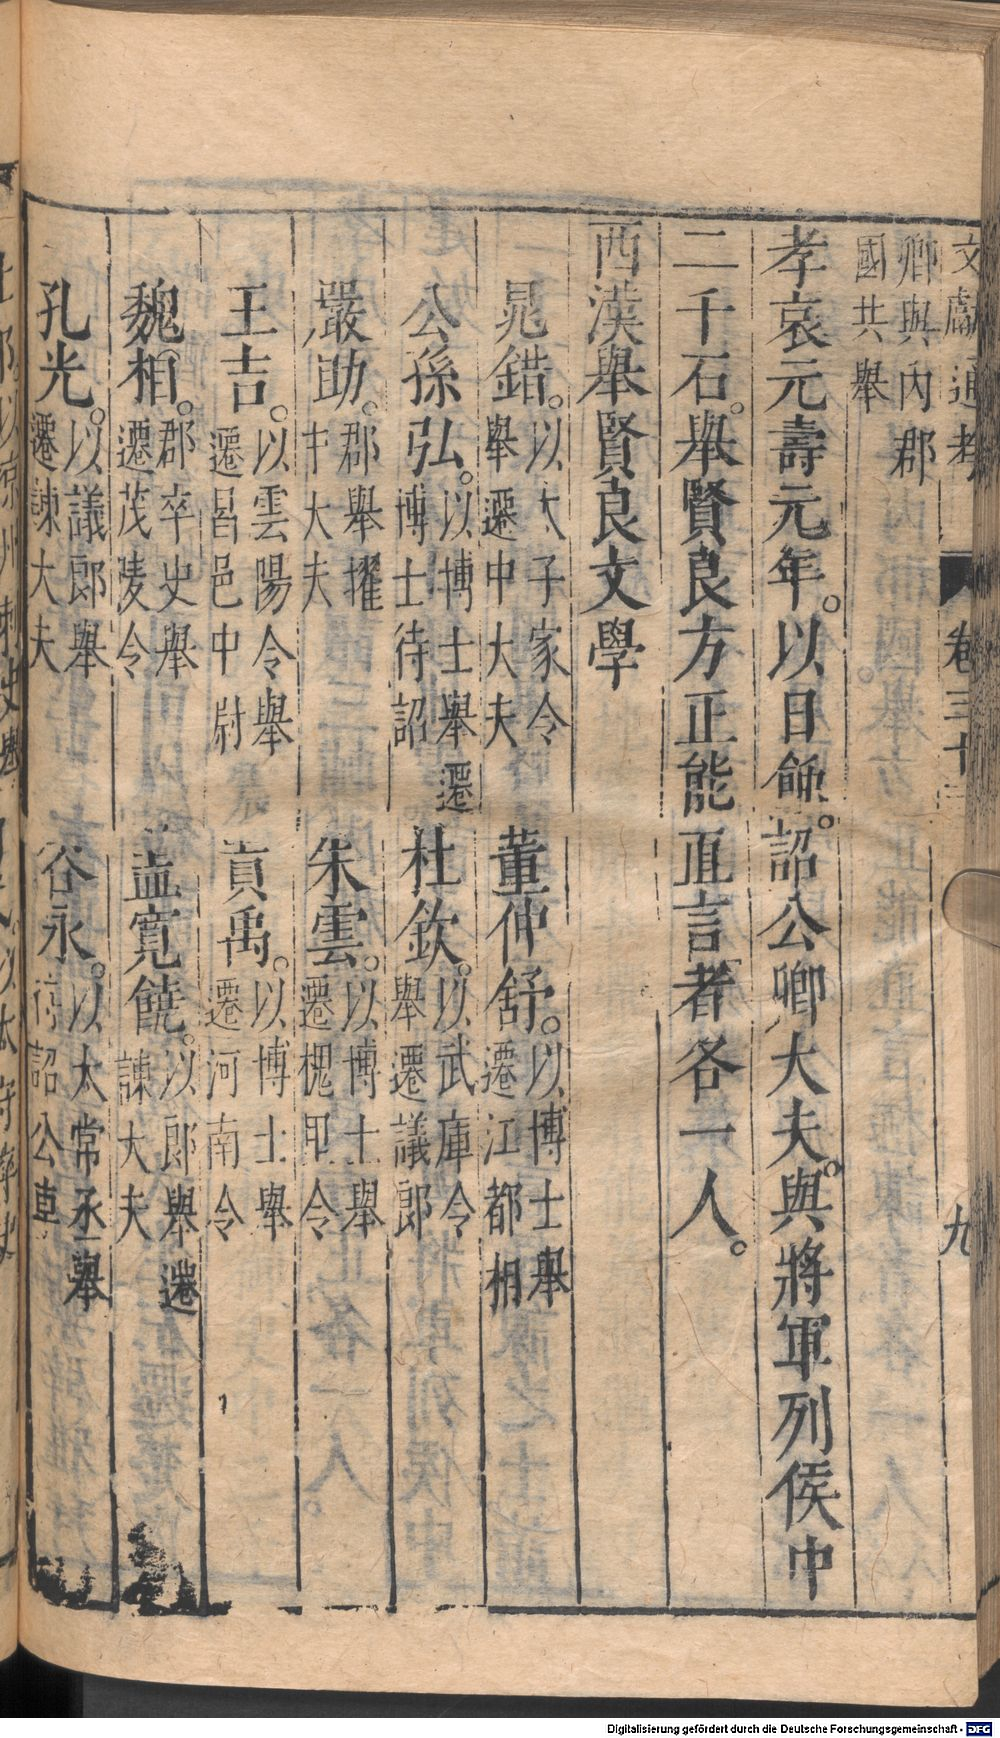 文獻通考 卷三十三 九
卿與內郡
國共舉
孝哀元壽元年。以日蝕。詔公卿大夫。與將軍列侯中
二千石。舉賢良方正能直言者各一人。
西漢舉賢良文學
晁錯。以太子家令
舉遷中大夫
董仲舒。以博士舉
遷江都相
公孫弘。以博士舉遷
博士待詔
杜欽。以武庫令
舉遷議郎
嚴助。郡舉擢
中大夫
朱雲。以博士舉
遷槐里令
王吉。以雲陽令舉
遷昌邑中尉
貢禹。以博士舉
遷河南令
魏相。郡卒史舉
遷茂陵令
盖寬饒。以郎舉遷
諫大夫
孔光。以議郎舉
遷諫大夫
谷永。以太常丞舉
待詔公車
Digitalisierung gefördert durch die Deutsche Forschungsgemeinschaft - DFG